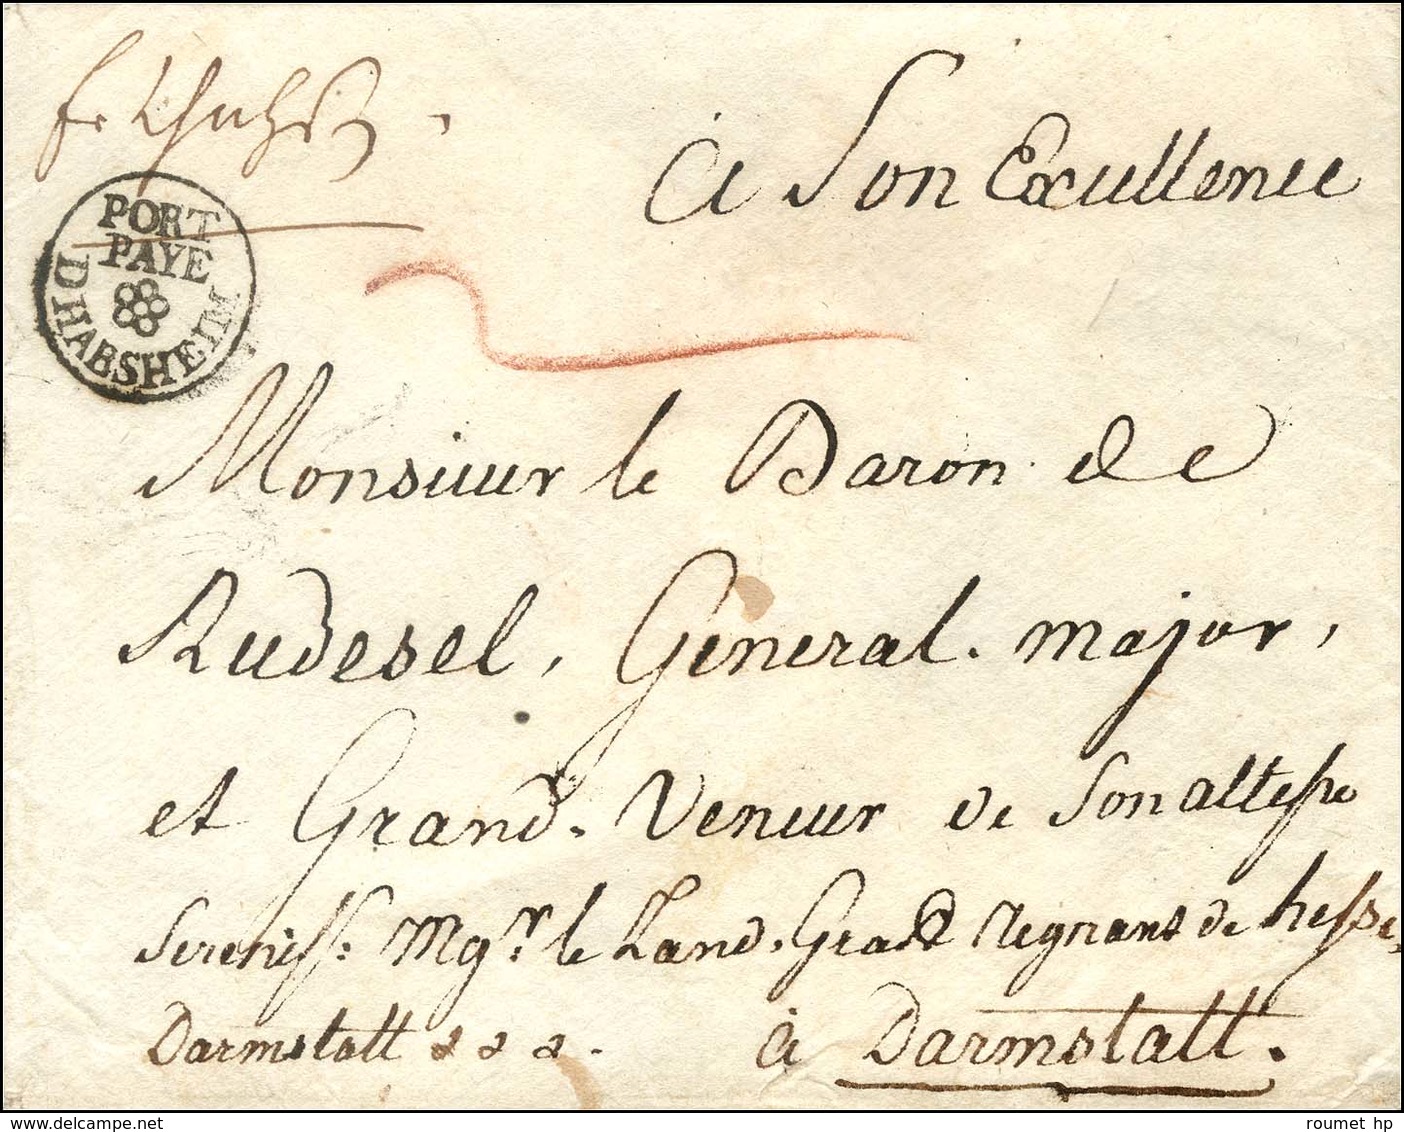 à Son Excellence
PORT
PAYE
D HABSHEIM
Monsieur le Baron de
Rudesel, Géneral. major,
et Grand. Veneur de Son altesse
Sereniss: Mgr. le Land. Grave Regnant de hesse
Darmstatt &&&.
à Darmstatt.
roumet hp
www.delcampe.net